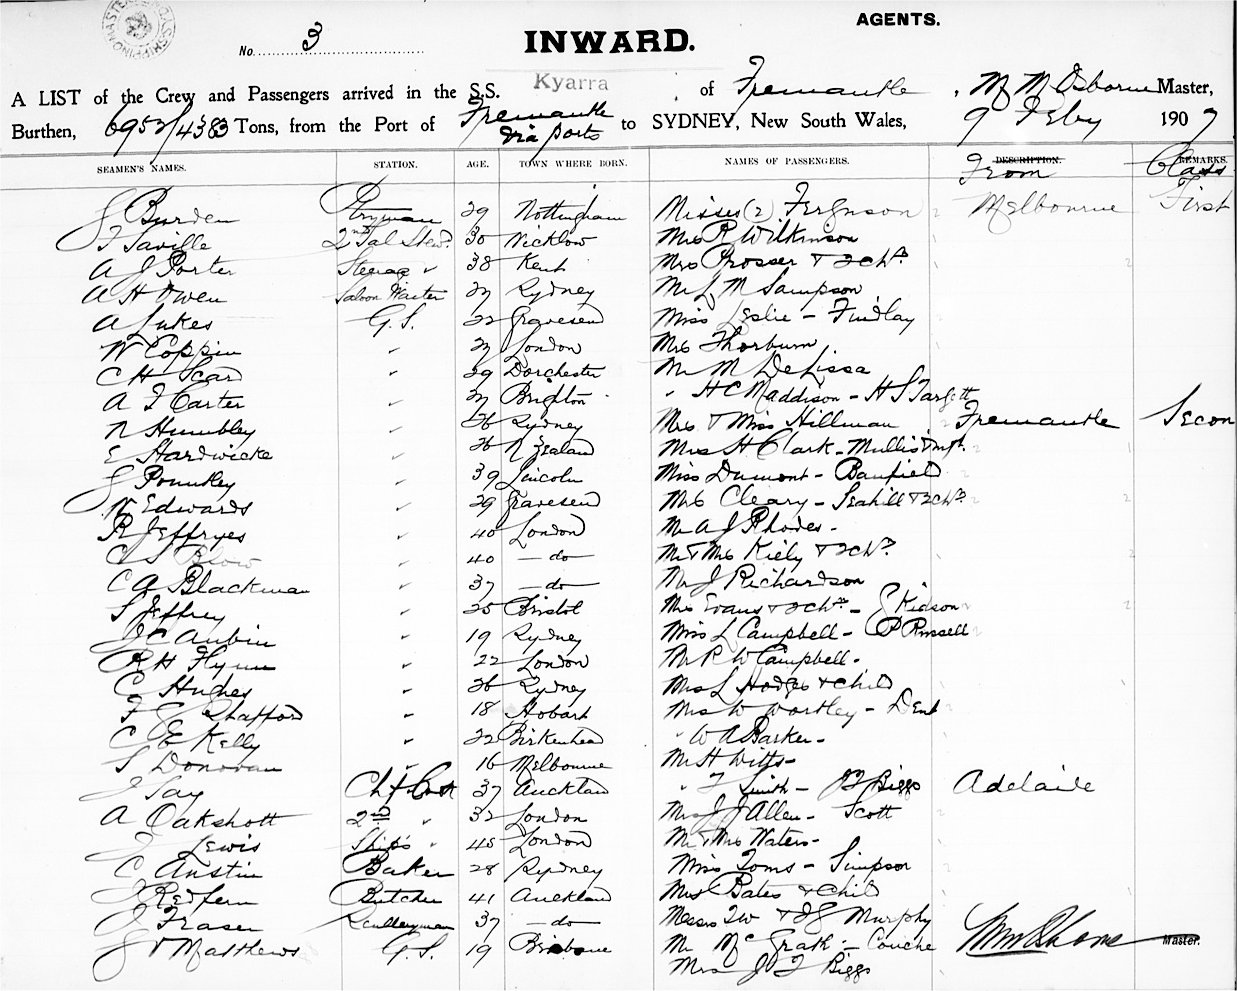 AGENTS.
No. 3
INWARD.
Kyarra
A LIST of the Crew and Passengers arrived in the S.S. of Fremantle, Mr M Osborne Master,
Burthen, 6953/4383 Tons, from the Port of Fremantle via ports to SYDNEY, New South Wales, 9 Feby 1907
SEAMEN'S NAMES. STATION. AGE. TOWN WHERE BORN. NAMES OF PASSENGERS. DESCRIPTION. From REMARKS. Class
J Burden Ptryman 29 Nottingham Misses (2) Ferguson Melbourne First
T Saville 2nd Sal Stewd 30 Wicklow Mrs R Wilkinson
A J Porter Steerage " 38 Kent Mrs Prosser & 2 chn
A H Owen Saloon Waiter 27 Sydney Mr L M Sampson
A Lukes G.S. 22 Gravesend Miss Leslie - Findlay
W Coppin " 27 London Mrs Thorburn
C H Scard " 29 Dorchester Mr M DeLissa
A F Carter " 27 Brighton " H C Maddison - H S Targett
N Humbley " 26 Sydney Mrs & Miss Hillman Fremantle Secon
E Hardwicke " 26 N Zealand Mrs H Clark - Mullis & inft
J Pounkey " 39 Lincoln Miss Dumont - Banfield
W Edwards " 29 Gravesend Mrs Cleary - Seahill & 2 chn
R Jeffryes " 40 London Mr A J Rhodes -
C S " 40 - do - Mr & Mrs Kiely & 2 chn
C A Blackman " 37 - do - Mr J Richardson
S Jeffrey " 25 Bristol Mrs Evans & 2 chn - J Kidson
J C Aubin " 19 Sydney Miss L Campbell - P Russell
R H Flynn " 22 London Mr R W Campbell -
C Hughes " 26 Sydney Mrs L Hodges & Child
F G Shafford " 18 Hobart Mrs W Wortley - Dent
C E Kelly " 22 Birkenhead " W A Barker -
S Donovan " 16 Melbourne Mr H Witts -
J Say Chf Cook 37 Auckland " F Smith - J F Biggs Adelaide
A Oakshott 2nd " 32 London Mrs J J Allen - Scott
J Lewis Ship's " 45 London Mr & Mrs Waters -
C Austin Baker 28 Sydney Miss Toms - Simpson
J Redfern Butcher 41 Auckland Mrs Bates & Child
J Fraser Sculleryman 37 - do - Messrs & Murphy
J V Matthews G.S. 19 Brisbane Mr McGrath - Couche Master.
Mrs J F Biggs